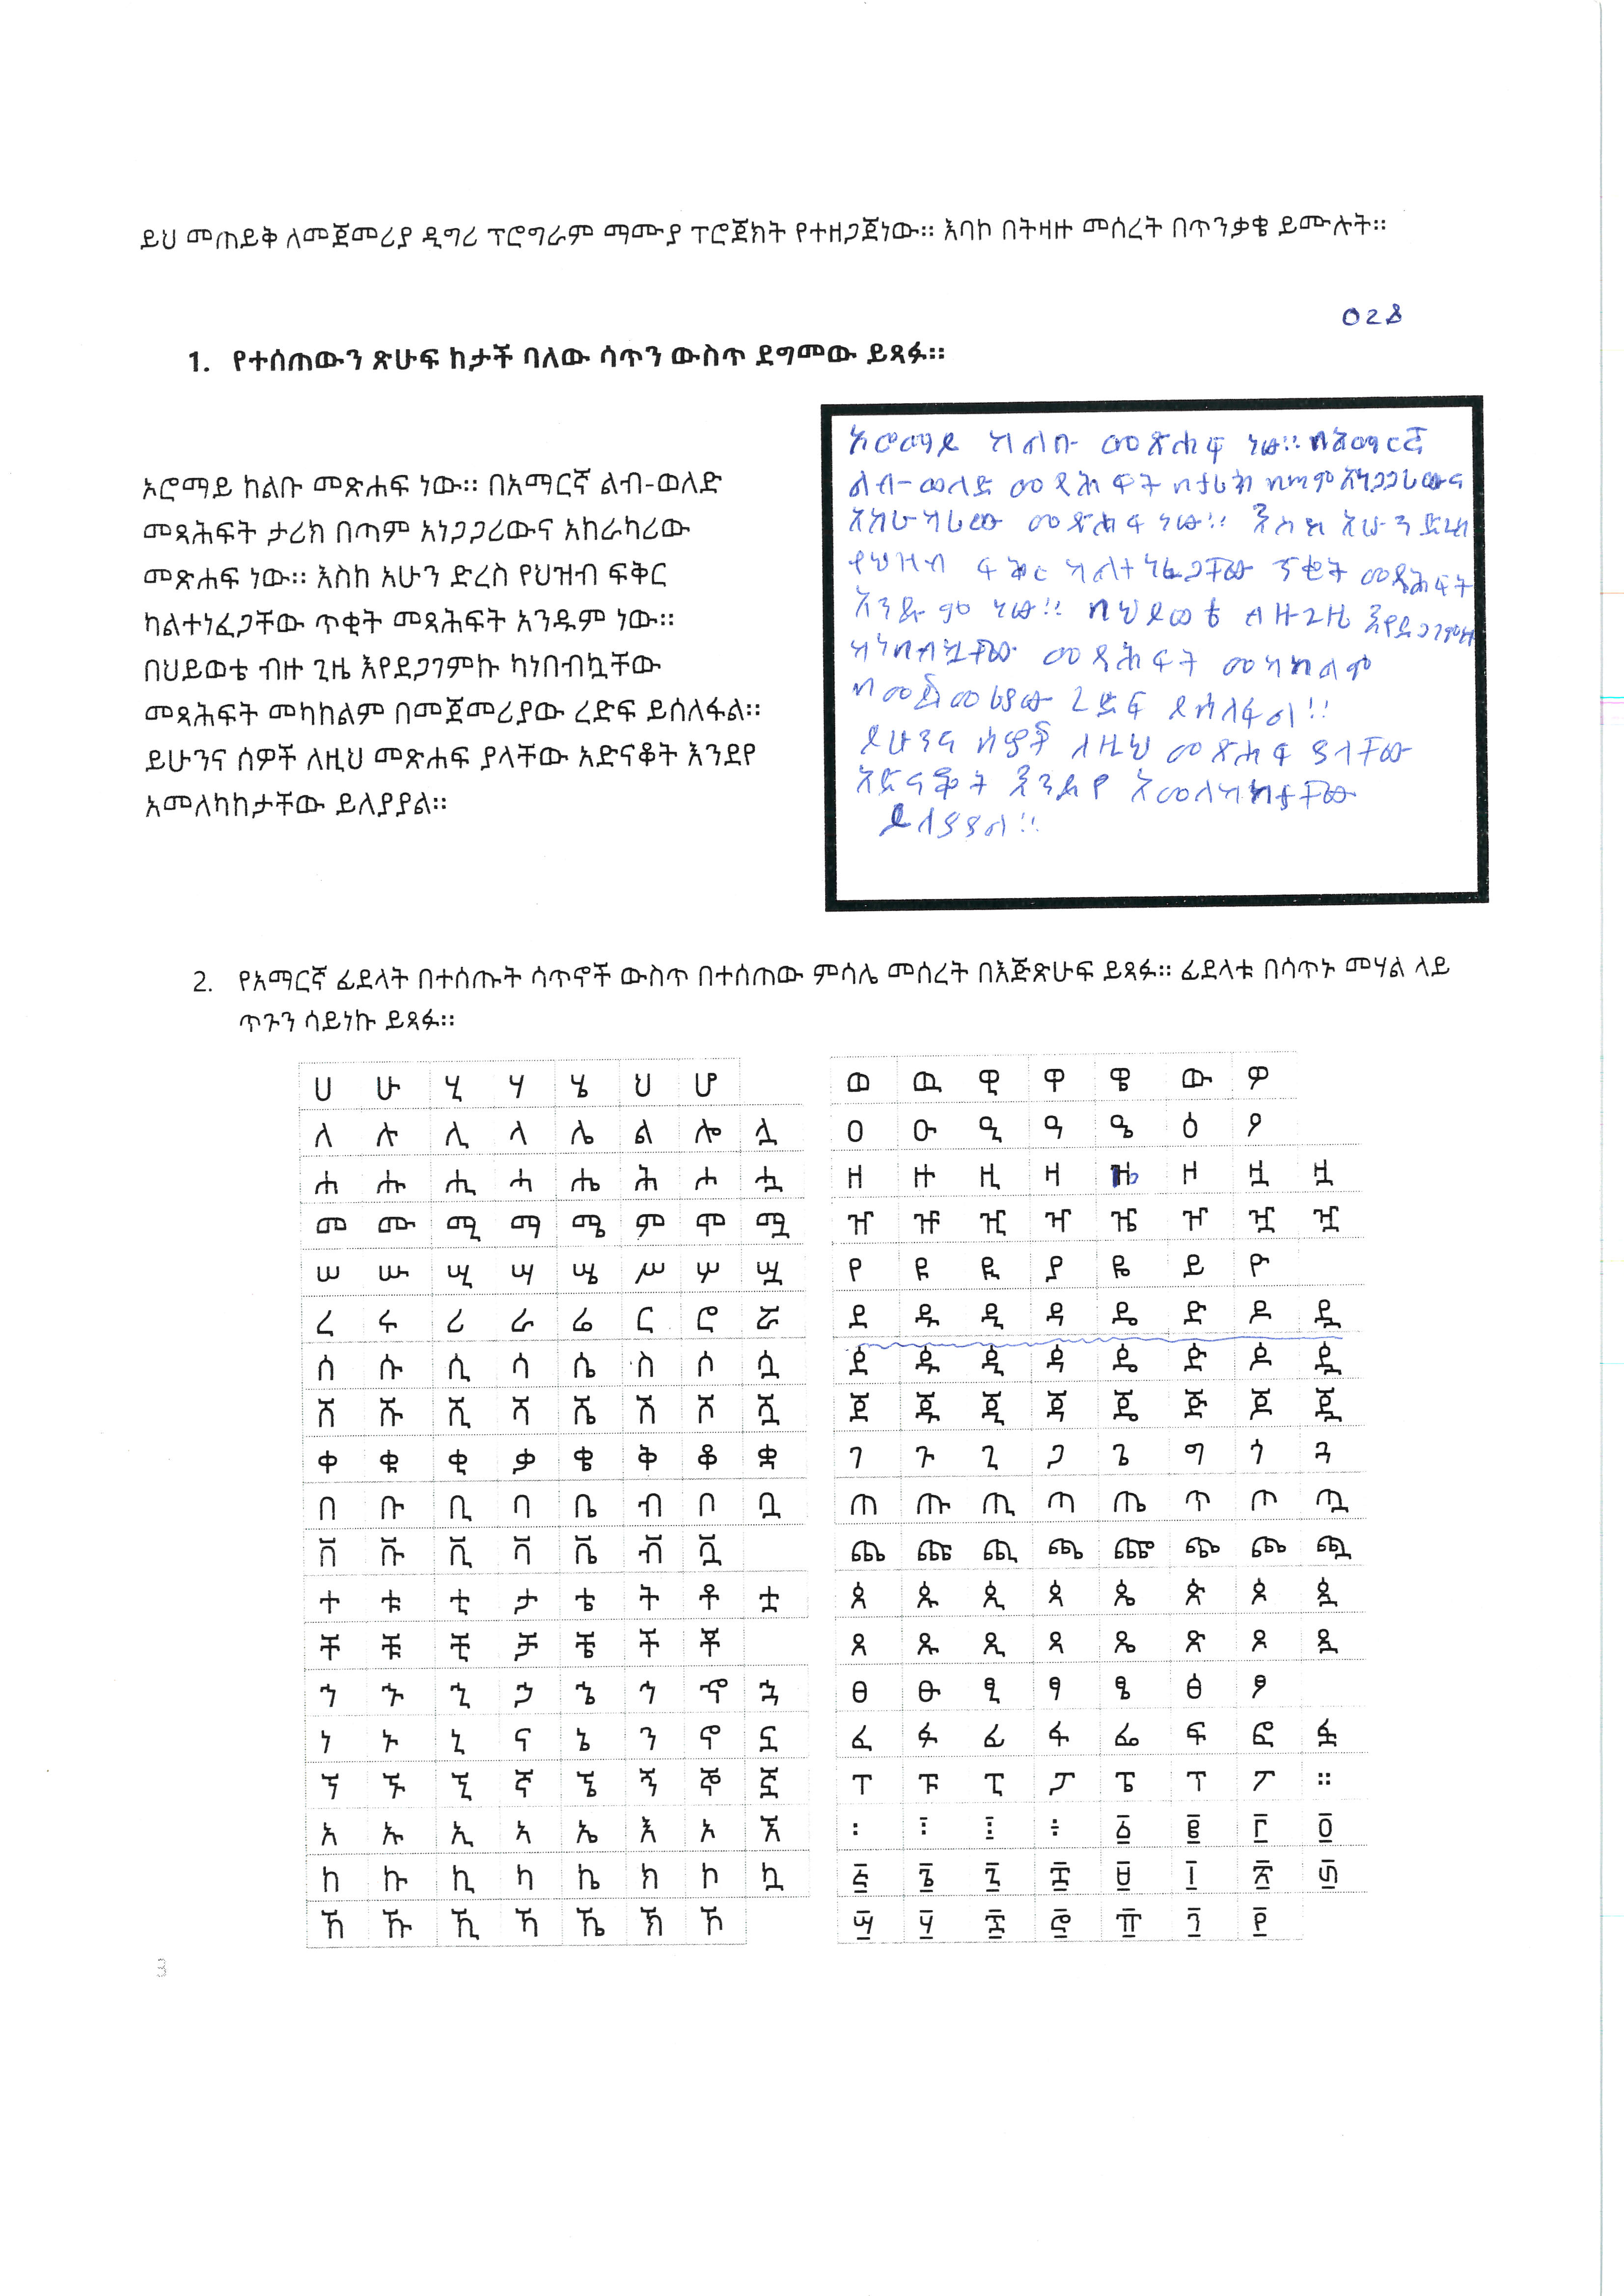 ይህ መጠይቅ ለመጀመሪያ ዲግሪ ፕሮግራም ማሙያ ፕሮጀክት የተዘጋጀነው። እባኮ በትዛዙ መሰረት በጥንቃቄ ይሙሉት።
028
1. የተሰጠውን ጽሁፍ ከታች ባለው ሳጥን ውስጥ ደግመው ይጻፉ።
ኦሮማይ ከልቡ መጽሐፍ ነው። በአማርኛ ልብ-ወለድ
መጻሕፍት ታሪክ በጣም አነጋጋሪውና አከራካሪው
መጽሐፍ ነው። እስከ አሁን ድረስ የህዝብ ፍቅር
ካልተነፈጋቸው ጥቂት መጻሕፍት አንዱም ነው።
በህይወቴ ብዙ ጊዜ እየደጋገምኩ ካነበብኳቸው
መጻሕፍት መካከልም በመጀመሪያው ረድፍ ይሰለፋል።
ይሁንና ሰዎች ለዚህ መጽሐፍ ያላቸው አድናቆት እንደየ
አመለካከታቸው ይለያያል።
ኦሮማይ ከልቡ መጽሐፍ ነው። በአማርኛ
ልብ-ወለድ መጻሕፍት በታሪክ በጣም አነጋጋሪውና
አከራካሪው መጽሐፍ ነው። እስከ አሁን ድረስ
የህዝብ ፍቅር ካልተነፈጋቸው ጥቂት መጻሕፍት
አንዱም ነው። በህይወቴ ብዙ ጊዜ እየደጋገምኩ
ካነበብኳቸው መጻሕፍት መካከልም
በመጀመሪያው ረድፍ ይሰለፋል።
ይሁንና ሰዎች ለዚህ መጽሐፍ ያላቸው
አድናቆት እንደየ አመለካከታቸው
ይለያያል።
2. የአማርኛ ፊደላት በተሰጡት ሳጥኖች ውስጥ በተሰጠው ምሳሌ መሰረት በእጅጽሁፍ ይጻፉ። ፊደላቱ በሳጥኑ መሃል ላይ
ጥጉን ሳይነኩ ይጻፉ።
ሀ ሁ ሂ ሃ ሄ ህ ሆ
ለ ሉ ሊ ላ ሌ ል ሎ ሏ
ሐ ሑ ሒ ሓ ሔ ሕ ሖ ሗ
መ ሙ ሚ ማ ሜ ም ሞ ሟ
ሠ ሡ ሢ ሣ ሤ ሥ ሦ ሧ
ረ ሩ ሪ ራ ሬ ር ሮ ሯ
ሰ ሱ ሲ ሳ ሴ ስ ሶ ሷ
ሸ ሹ ሺ ሻ ሼ ሽ ሾ ሿ
ቀ ቁ ቂ ቃ ቄ ቅ ቆ ቋ
በ ቡ ቢ ባ ቤ ብ ቦ ቧ
ቨ ቩ ቪ ቫ ቬ ቭ ቯ
ተ ቱ ቲ ታ ቴ ት ቶ ቷ
ቸ ቹ ቺ ቻ ቼ ች ቾ
ኀ ኁ ኂ ኃ ኄ ኅ ኆ ኋ
ነ ኑ ኒ ና ኔ ን ኖ ኗ
ኘ ኙ ኚ ኛ ኜ ኝ ኞ ኟ
አ ኡ ኢ ኣ ኤ እ ኦ ኧ
ከ ኩ ኪ ካ ኬ ክ ኮ ኳ
ኸ ኹ ኺ ኻ ኼ ኽ ኾ
ወ ዉ ዊ ዋ ዌ ው ዎ
ዐ ዑ ዒ ዓ ዔ ዕ ዖ
ዘ ዙ ዚ ዛ ዜ ዞ ዟ ዟ
ዠ ዡ ዢ ዣ ዤ ዦ ዧ ዧ
የ ዩ ዪ ያ ዬ ይ ዮ
ደ ዱ ዲ ዳ ዴ ድ ዶ ዷ
ዸ ዹ ዺ ዻ ዼ ዽ ዾ ዿ
ጀ ጁ ጂ ጃ ጄ ጅ ጆ ጇ
ገ ጉ ጊ ጋ ጌ ግ ጎ ጓ
ጠ ጡ ጢ ጣ ጤ ጥ ጦ ጧ
ጨ ጩ ጪ ጫ ጬ ጭ ጮ ጯ
ጰ ጱ ጲ ጳ ጴ ጵ ጶ ጷ
ጸ ጹ ጺ ጻ ጼ ጽ ጾ ጿ
ፀ ፁ ፂ ፃ ፄ ፅ ፆ
ፈ ፉ ፊ ፋ ፌ ፍ ፎ ፏ
ፐ ፑ ፒ ፓ ፔ ፕ ፖ ።
፡ ፤ ፩ ፪ ፫ ፬
፭ ፮ ፯ ፰ ፱ ፲ ፳ ፴
፵ ፶ ፷ ፸ ፹ ፺ ፻
3